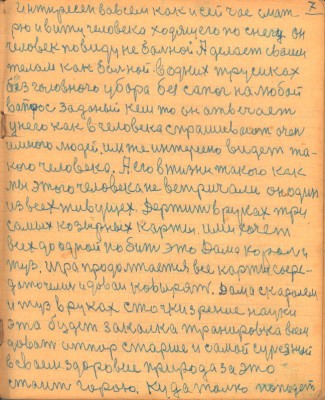 7
интересен вовсем как и сей час смот
рю и вижу человека ходящего по снегу он
человек по виду не болной А делает своим
телом как болной водних трусиках
без головного убора без сапог на любой
вопрос заданый кем то он отвечает
у него как в человека спрашивают очен
много людей, им же интересно видет та-
кого человека, А его в жизни такого как
мы этого человека не встречали он один
из всех живущих. Держит в руках три
самих козирных карты, ими хочет
всех до одной побит это Дама корол и
туз, игра продолжается все карты сосре-
доточими и давай ковырят. Дама с королем
и туз в руках с точки зрение науки
это будет закалка тренировка всем
дават отпор старше и самой
в своем здоровие природа за это
стоит горою, куда толко попадет